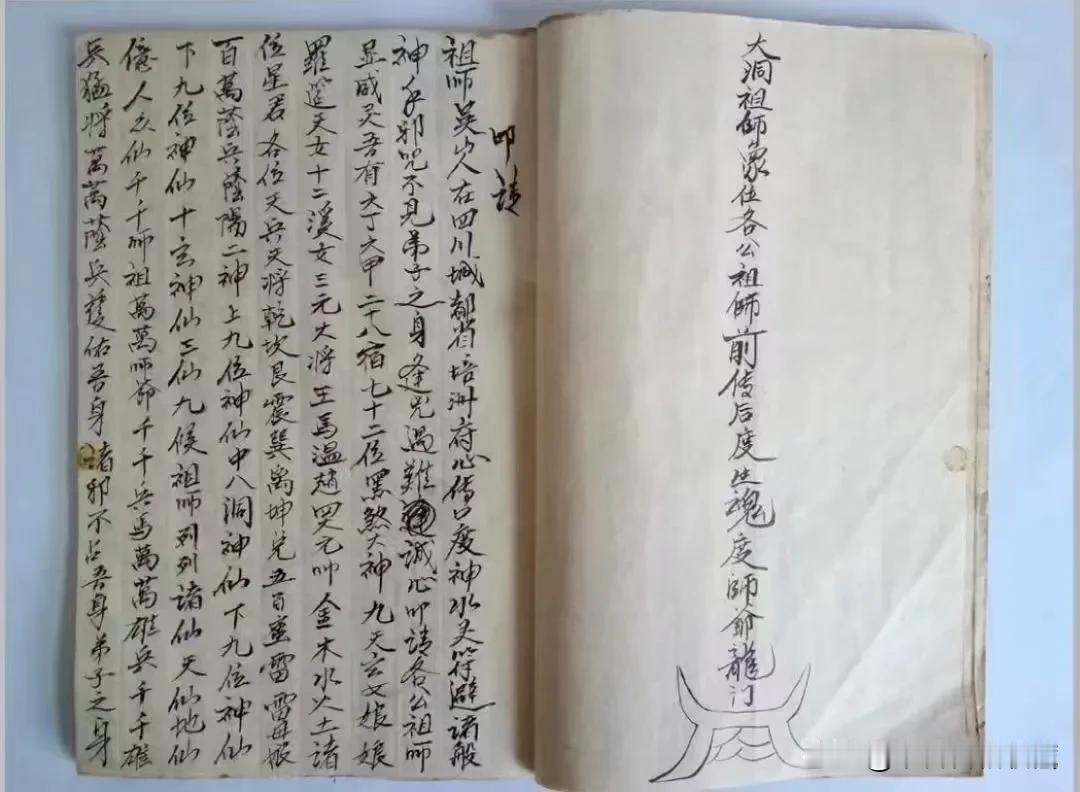 大洞祖師蒙位各公祖師前传后度生魂度師爺龍门
叩請
祖师英山人在四川城都省培洲府心传口度神水灵符避诸般
神乎邪咒不见弟子之身逢凶過難誠心叩請各公祖师
显威灵吾有六丁六甲二十八宿七十二位黑煞大神九天玄女娘娘
羅莲天女十二溪女三元大将王馬溫趙四大元帅金木水火土诸
位星君各位天兵天将乾坎艮震巽离坤兑五百蛮雷雷母娘
百萬蔭兵蔭陽二神上九位神仙中八洞神仙下九位神仙
下九位神仙十玄神仙三仙九候祖师列列诸仙天仙地仙
億人众仙千千师祖萬萬师爺千千兵馬萬萬雄兵千千雄
兵猛将萬萬蔭兵護佑吾身诸邪不占吾身弟子之身